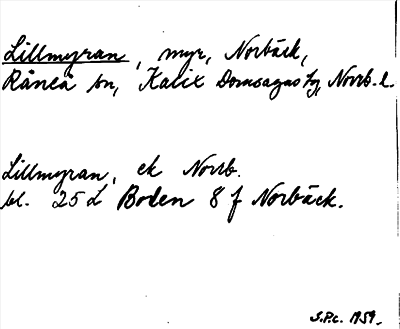 Lillmyran, myr, Norbäck,
Råneå sn, Kalix Domsagas tg, Norrb. l.
Lillmyran, ek Norrb.
bl. 25 L Boden 8 f Norbäck.
S.P.c. 1959.